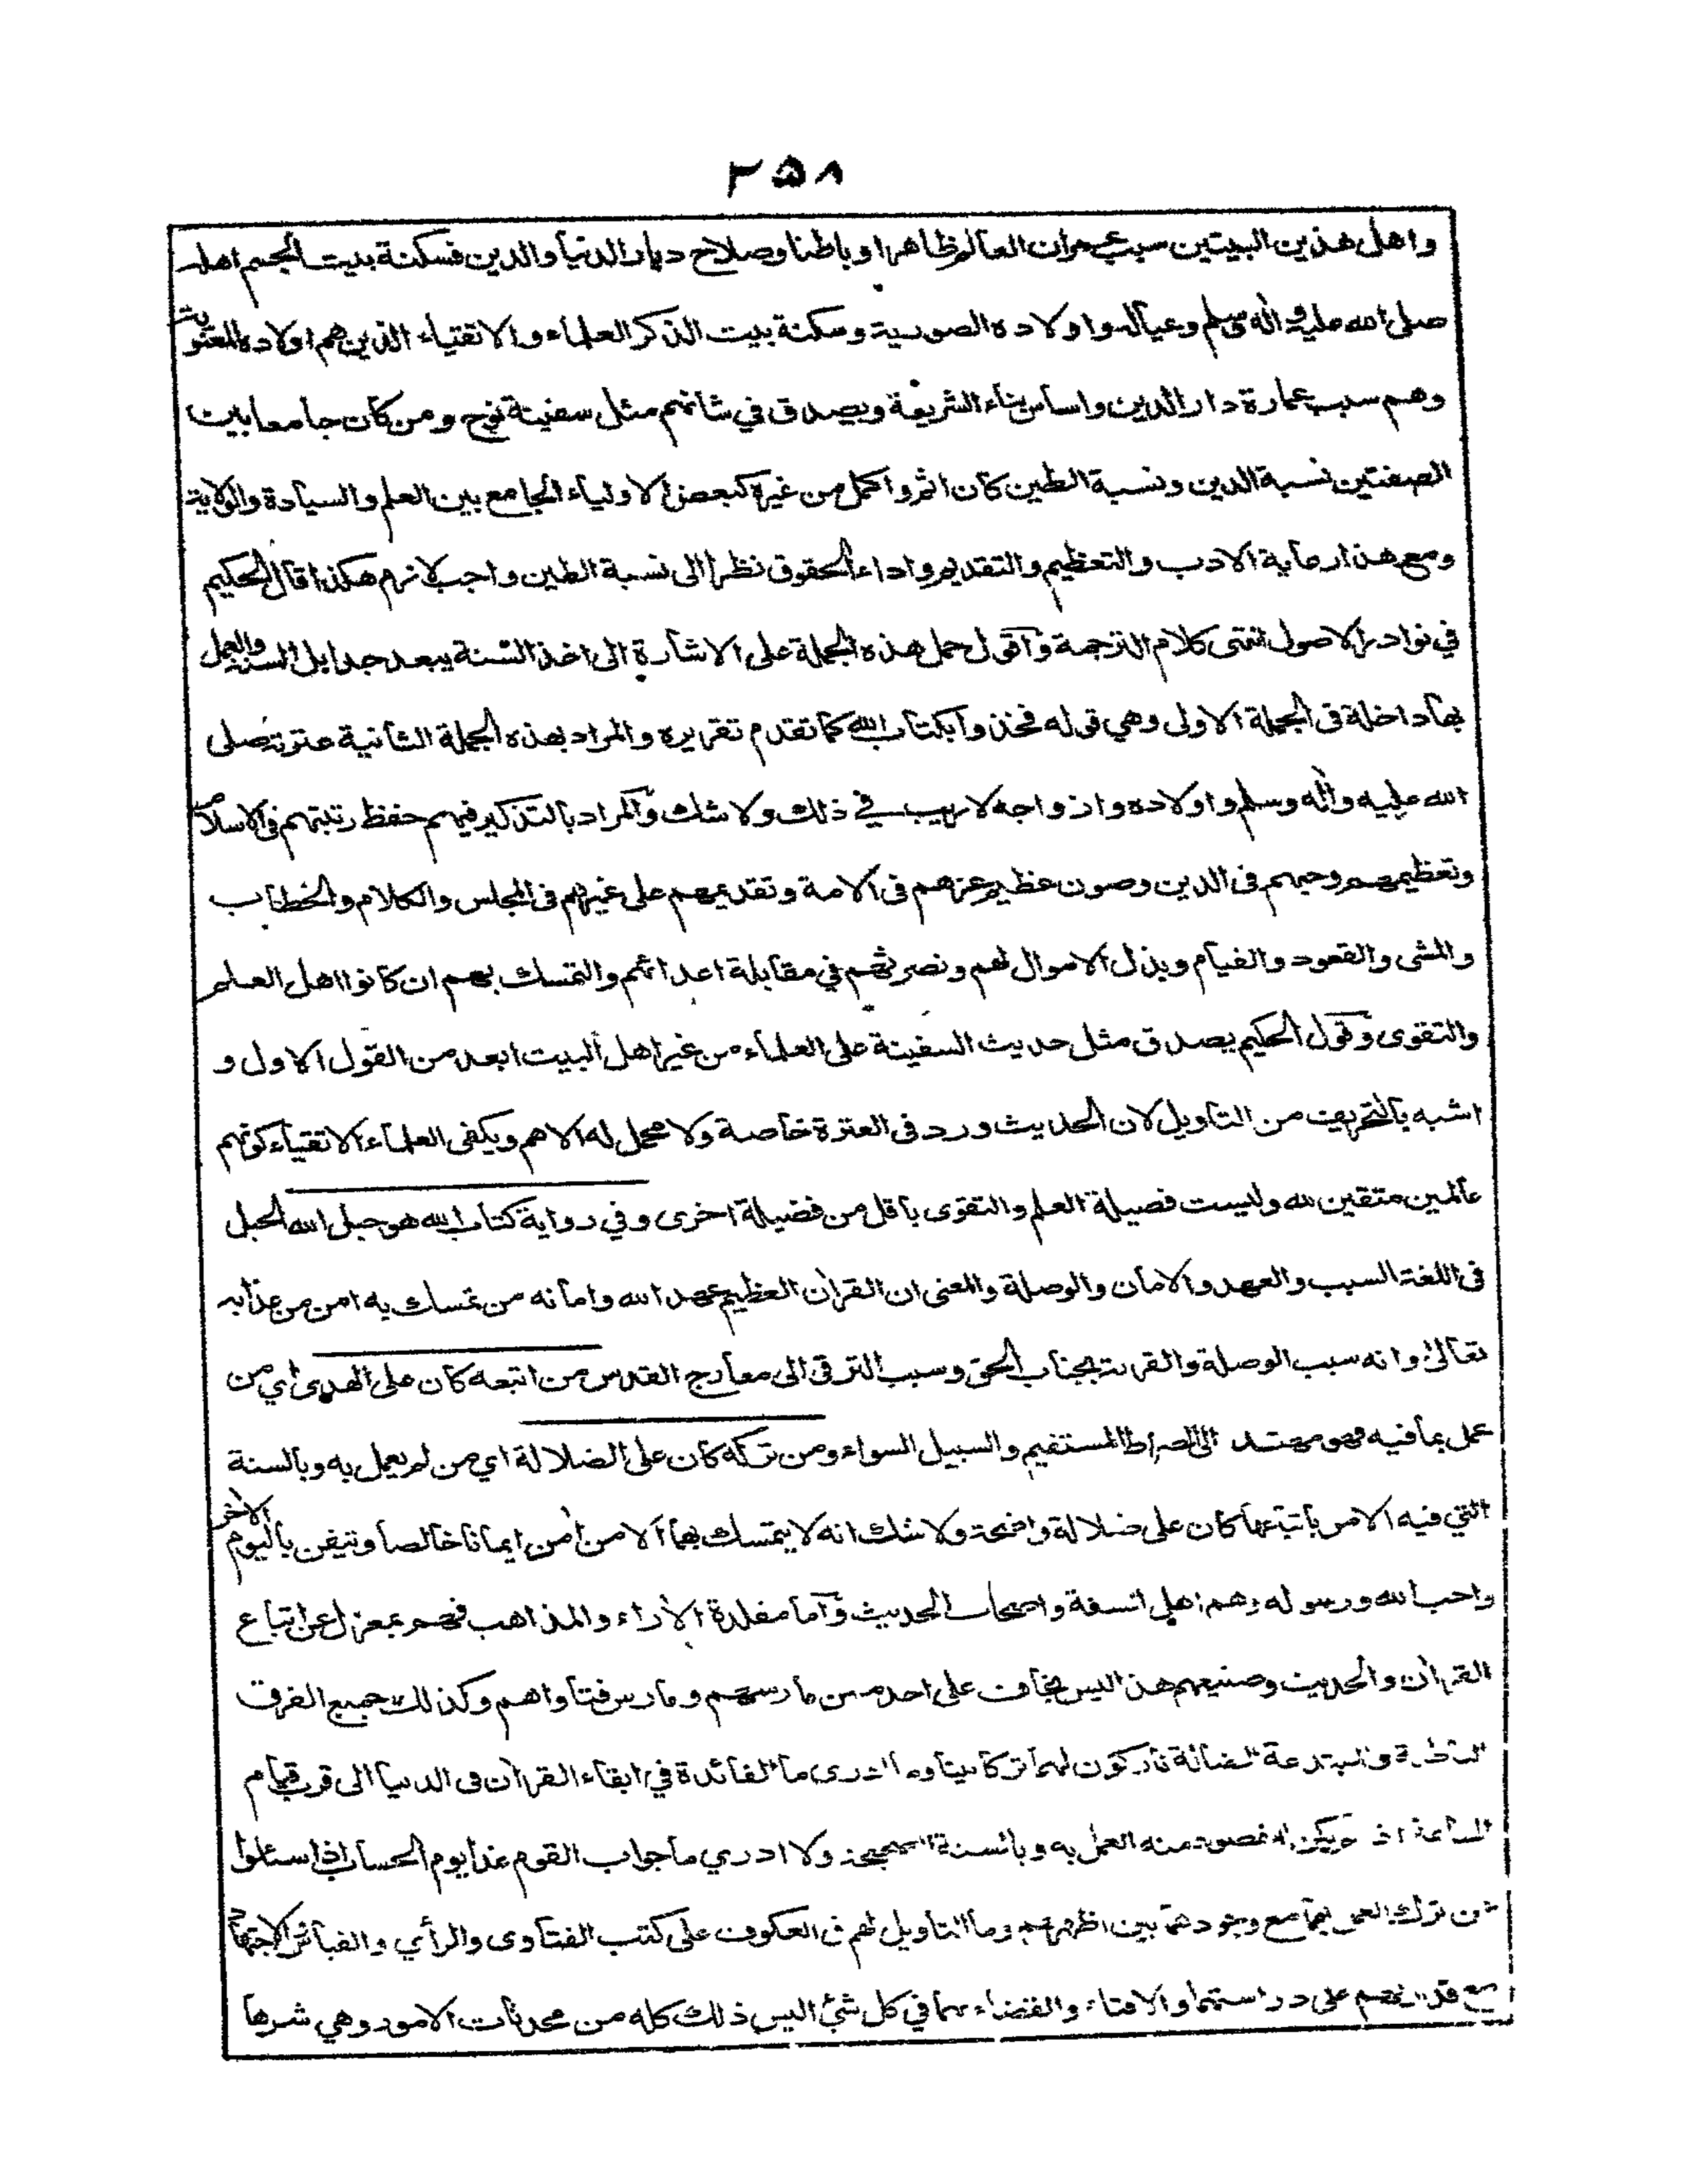 ٣٥٨
واهل هذين البيتين سبب عمران العالم ظاهرا وباطنا وصلاح ديار الدنيا والدين فسكنة بيت الجسم اهله
صلى الله عليه واله وسلم وعياله واولاده الصورية وسكنة بيت الذكر العلماء والاتقياء الذين هم اولاده المعنوية
وهم سبب عمارة دار الدين واساس بناء الشريعة ويصدق في شانهم مثل سفينة نوح ومن كان جامعا بين
الصفتين نسبة الدين ونسبة الطين كان اتم واكمل من غيره كبعض الاولياء الجامع بين العلم والسيادة والولاية
ومع هذا رعاية الادب والتعظيم والتقديم واداء الحقوق نظرا الى نسبة الطين واجب لازم هكذا قال الحكيم
في نوادر الاصول انتهى كلام الترجمة واقول حمل هذه الجملة على الاشارة الى اخذ السنة يبعد جدا بل السنة والعمل
بها داخلة في الجملة الاولى وهي قوله فخذوا بكتاب الله كما تقدم تقريره والمراد بهذه الجملة الثانية عترته صلى
الله عليه واله وسلم واولاده وازواجه لا ريب في ذلك ولا شك والمراد بالتذكير فيهم حفظ رتبتهم في الاسلام
وتعظيمهم وحبهم في الدين وصون عظيم عزهم في الامة وتقديمهم على غيرهم في المجلس والكلام والخطاب
والمشى والقعود والقيام وبذل الاموال لهم ونصرتهم في مقابلة اعدائهم والتمسك بهم ان كانوا اهل العلم
والتقوى وقول الحكيم يصدق مثل حديث السفينة على العلماء من غير اهل البيت ابعد من القول الاول و
اشبه بالتحريف من التاويل لان الحديث ورد في العترة خاصة ولا محمل له الا هم ويكفى العلماء الاتقياء كونهم
عالمين متقين لله وليست فضيلة العلم والتقوى باقل من فضيلة اخرى وفي رواية كتاب الله هو حبل الله الحبل
في اللغة السبب والعهد والامان والوصلة والمعنى ان القران العظيم عهد الله وامانه من تمسك به امن من عذابه
تعالى وانه سبب الوصلة والقربة بجناب الحق وسبب الترقى الى معارج القدس من اتبعه كان على الهدى اي من
عمل بما فيه فهو مهتد الى الصراط المستقيم والسبيل السواء ومن تركه كان على الضلالة اي من لم يعمل به وبالسنة
التي فيه الامر باتباعها كان على ضلالة واضحة ولا شك انه لا يتمسك بهما الا من امن ايمانا خالصا وتيقن باليوم الاخر
واحب الله ورسوله وهم اهل السنة واصحاب الحديث واما مقلدة الاراء والمذاهب فهم بمعزل عن اتباع
القران والحديث وصنيعهم هذا ليس بخاف على احد ممن مارسهم ومارس فتاواهم وكذلك جميع الفرق
الباطلة والمبتدعة الضالة تاركون لهما تركا بينا وما ادرى ما الفائدة في ابقاء القران في الدنيا الى قرب قيام
الساعة اذ لم يكن المقصود منه العمل به وبالسنة الصحيحة ولا ادري ما جواب القوم غدا يوم الحساب اذا سئلوا
عن ترك العمل بهما مع وجودهما بين اظهرهم وما التاويل لهم في العكوف على كتب الفتاوى والرأي والقياس والاجتهاد
مع قدرتهم على دراستهما والافتاء والقضاء بهما في كل شئ اليس ذلك كله من محدثات الامور وهي شرها